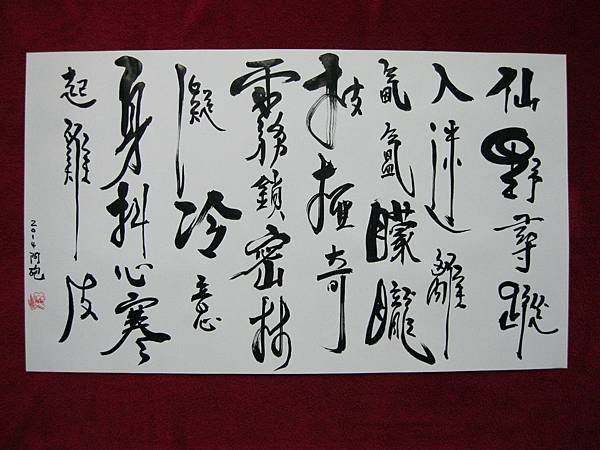 仙野尋蹤
入迷離
氤氳朦朧
枝椏奇
霧鎖密林
凝冷意
身抖心寒
起雞皮
2014 阿砲